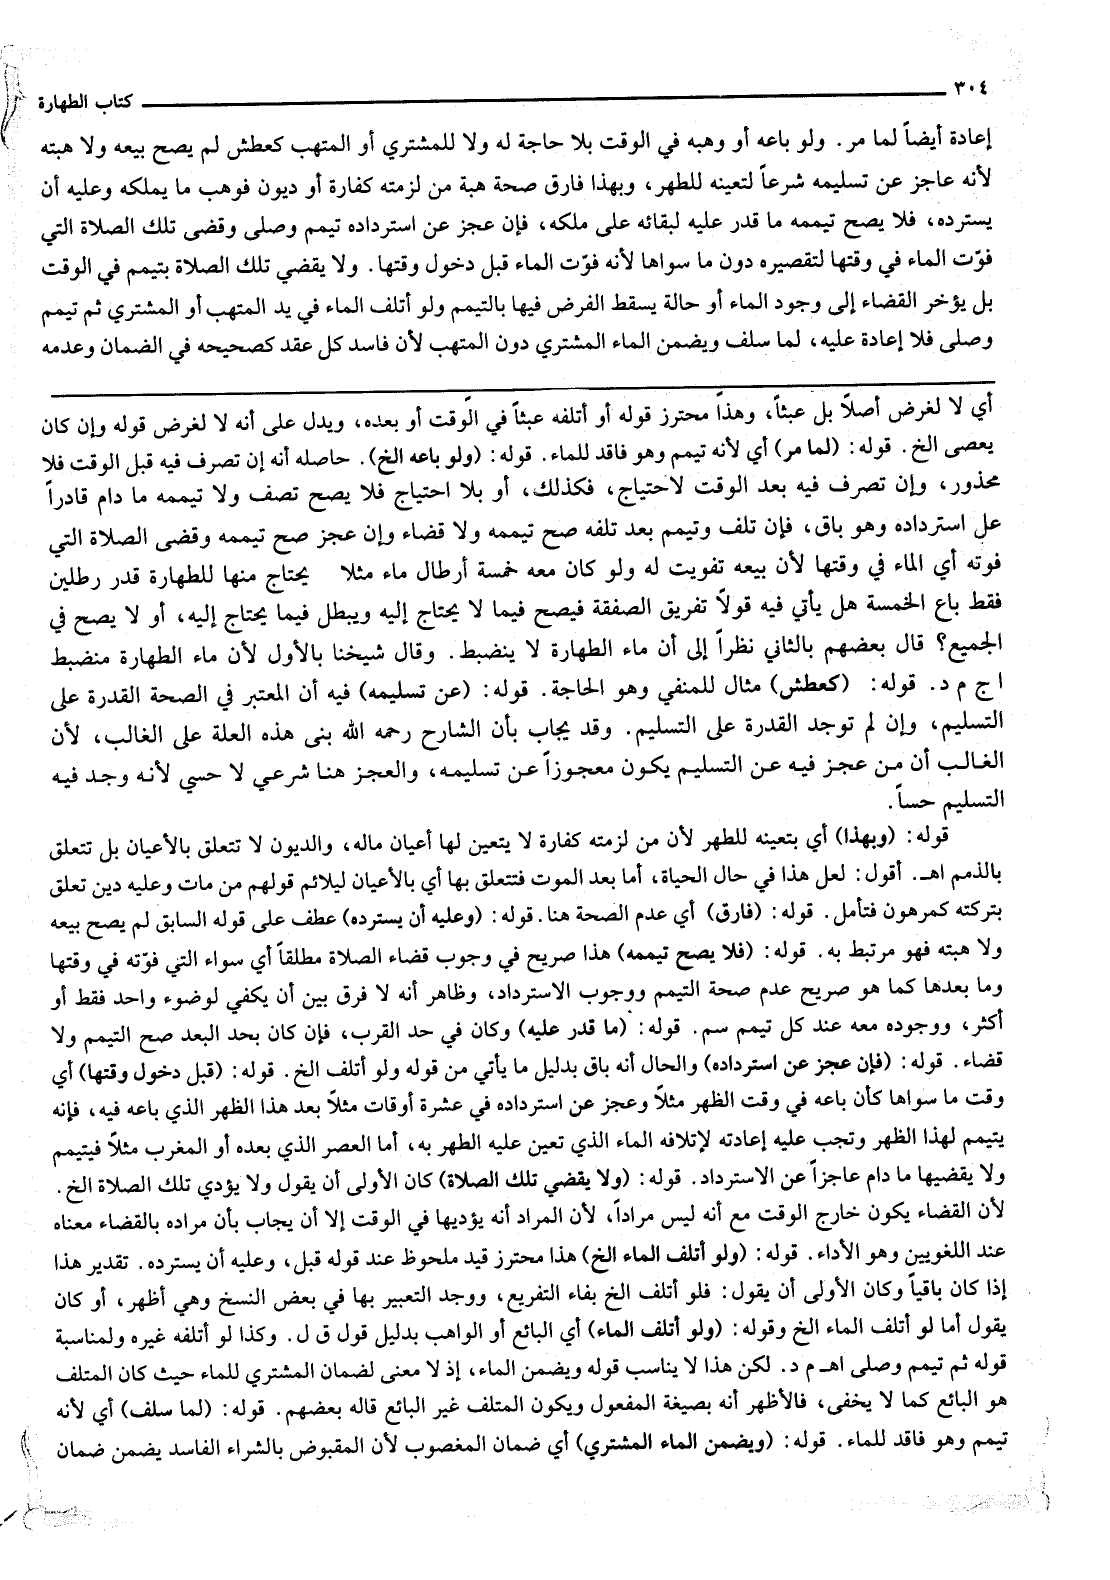 ٣٠٤ كتاب الطهارة
إعادة أيضاً لما مر. ولو باعه أو وهبه في الوقت بلا حاجة له ولا للمشتري أو المتهب كعطش لم يصح بيعه ولا هبته
لأنه عاجز عن تسليمه شرعاً لتعينه للطهر، وبهذا فارق صحة هبة من لزمته كفارة أو ديون فوهب ما يملكه وعليه أن
يسترده، فلا يصح تيممه ما قدر عليه لبقائه على ملكه، فإن عجز عن استرداده تيمم وصلى وقضى تلك الصلاة التي
فوّت الماء في وقتها لتقصيره دون ما سواها لأنه فوّت الماء قبل دخول وقتها. ولا يقضي تلك الصلاة بتيمم في الوقت
بل يؤخر القضاء إلى وجود الماء أو حالة يسقط الفرض فيها بالتيمم ولو أتلف الماء في يد المتهب أو المشتري ثم تيمم
وصلى فلا إعادة عليه، لما سلف ويضمن الماء المشتري دون المتهب لأن فاسد كل عقد كصحيحه في الضمان وعدمه
أي لا لغرض أصلاً بل عبثاً، وهذا محترز قوله أو أتلفه عبثاً في الوقت أو بعده، ويدل على أنه لا لغرض قوله وإن كان
يعصى الخ. قوله: (لما مر) أي لأنه تيمم وهو فاقد للماء. قوله: (ولو باعه الخ). حاصله أنه إن تصرف فيه قبل الوقت فلا
محذور، وإن تصرف فيه بعد الوقت لاحتياج، فكذلك، أو بلا احتياج فلا يصح تصف ولا تيممه ما دام قادراً
على استرداده وهو باق، فإن تلف وتيمم بعد تلفه صح تيممه ولا قضاء وإن عجز صح تيممه وقضى الصلاة التي
فوته أي الماء في وقتها لأن بيعه تفويت له ولو كان معه خمسة أرطال ماء مثلا يحتاج منها للطهارة قدر رطلين
فقط باع الخمسة هل يأتي فيه قولاً تفريق الصفقة فيصح فيما لا يحتاج إليه ويبطل فيما يحتاج إليه، أو لا يصح في
الجميع؟ قال بعضهم بالثاني نظراً إلى أن ماء الطهارة لا ينضبط. وقال شيخنا بالأول لأن ماء الطهارة منضبط
ا ج م د. قوله: (كعطش) مثال للمنفي وهو الحاجة. قوله: (عن تسليمه) فيه أن المعتبر في الصحة القدرة على
التسليم، وإن لم توجد القدرة على التسليم. وقد يجاب بأن الشارح رحمه الله بنى هذه العلة على الغالب، لأن
الغالب أن من عجز فيه عن التسليم يكون معجوزاً عن تسليمه، والعجز هنا شرعي لا حسي لأنه وجد فيه
التسليم حساً.
قوله: (وبهذا) أي بتعينه للطهر لأن من لزمته كفارة لا يتعين لها أعيان ماله، والديون لا تتعلق بالأعيان بل تتعلق
بالذمم اهـ. أقول: لعل هذا في حال الحياة، أما بعد الموت فتتعلق بها أي بالأعيان ليلائم قولهم من مات وعليه دين تعلق
بتركته كمرهون فتأمل. قوله: (فارق) أي عدم الصحة هنا. قوله: (وعليه أن يسترده) عطف على قوله السابق لم يصح بيعه
ولا هبته فهو مرتبط به. قوله: (فلا يصح تيممه) هذا صريح في وجوب قضاء الصلاة مطلقاً أي سواء التي فوّته في وقتها
وما بعدها كما هو صريح عدم صحة التيمم ووجوب الاسترداد، وظاهر أنه لا فرق بين أن يكفي لوضوء واحد فقط أو
أكثر، ووجوده معه عند كل تيمم سم. قوله: (ما قدر عليه) وكان في حد القرب، فإن كان بحد البعد صح التيمم ولا
قضاء. قوله: (فإن عجز عن استرداده) والحال أنه باق بدليل ما يأتي من قوله ولو أتلف الخ. قوله: (قبل دخول وقتها) أي
وقت ما سواها كأن باعه في وقت الظهر مثلاً وعجز عن استرداده في عشرة أوقات مثلاً بعد هذا الظهر الذي باعه فيه، فإنه
يتيمم لهذا الظهر وتجب عليه إعادته لإتلافه الماء الذي تعين عليه الطهر به، أما العصر الذي بعده أو المغرب مثلاً فيتيمم
ولا يقضيها ما دام عاجزاً عن الاسترداد. قوله: (ولا يقضي تلك الصلاة) كان الأولى أن يقول ولا يؤدي تلك الصلاة الخ.
لأن القضاء يكون خارج الوقت مع أنه ليس مراداً، لأن المراد أنه يؤديها في الوقت إلا أن يجاب بأن مراده بالقضاء معناه
عند اللغويين وهو الأداء. قوله: (ولو أتلف الماء الخ) هذا محترز قيد ملحوظ عند قوله قبل، وعليه أن يسترده. تقدير هذا
إذا كان باقياً وكان الأولى أن يقول: فلو أتلف الخ بفاء التفريع، ووجد التعبير بها في بعض النسخ وهي أظهر، أو كان
يقول أما لو أتلف الماء الخ وقوله: (ولو أتلف الماء) أي البائع أو الواهب بدليل قول ق ل. وكذا لو أتلفه غيره ولمناسبة
قوله ثم تيمم وصلى اهـ م د. لكن هذا لا يناسب قوله ويضمن الماء، إذ لا معنى لضمان المشتري للماء حيث كان المتلف
هو البائع كما لا يخفى، فالأظهر أنه بصيغة المفعول ويكون المتلف غير البائع قاله بعضهم. قوله: (لما سلف) أي لأنه
تيمم وهو فاقد للماء. قوله: (ويضمن الماء المشتري) أي ضمان المغصوب لأن المقبوض بالشراء الفاسد يضمن ضمان